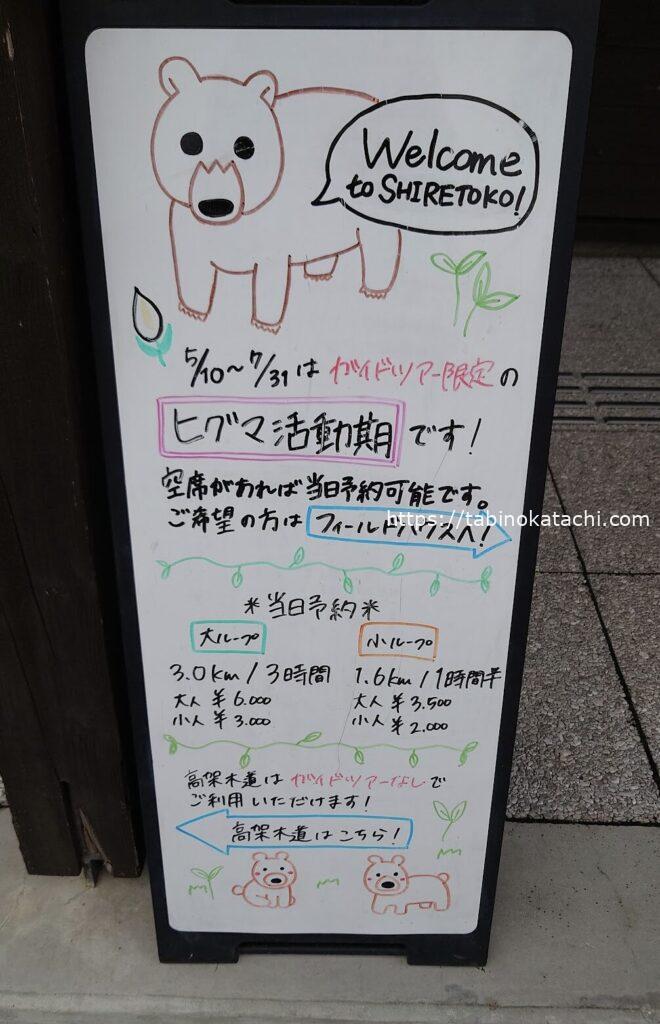 Welcome
to SHIRETOKO!
5/10～7/31は ガイドツアー限定の
ヒグマ活動期です！
空席があれば当日予約可能です。
ご希望の方は フィールドハウスへ！
https://tabinokatachi.com
＊当日予約＊
大ループ
3.0km/3時間
大人 ¥6.000
小人 ¥3.000
小ループ
1.6km/1時間半
大人 ¥3.500
小人 ¥2.000
高架木道は ガイドツアーなしで
ご利用いただけます！
高架木道はこちら！